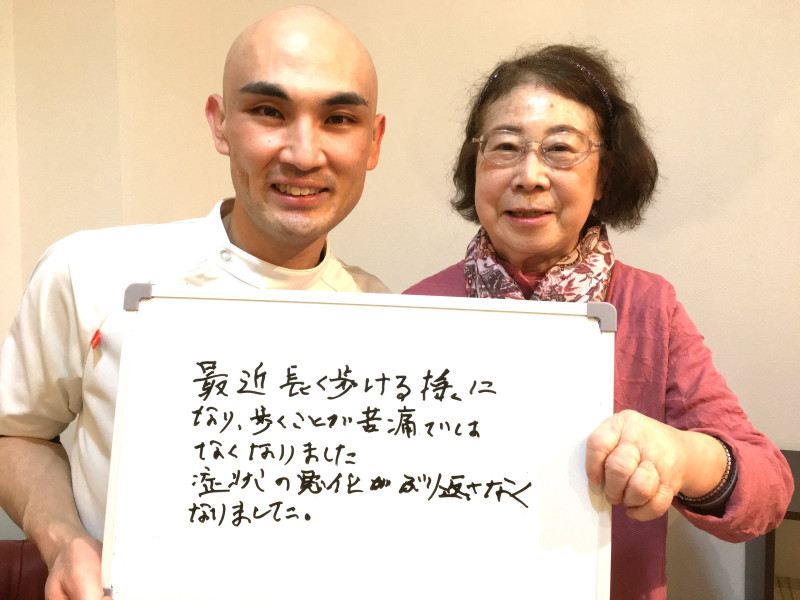 最近長く歩ける様に
なり、歩くことが苦痛でしは
なくなりました
症状の悪化がぶり返さなく
なりました。